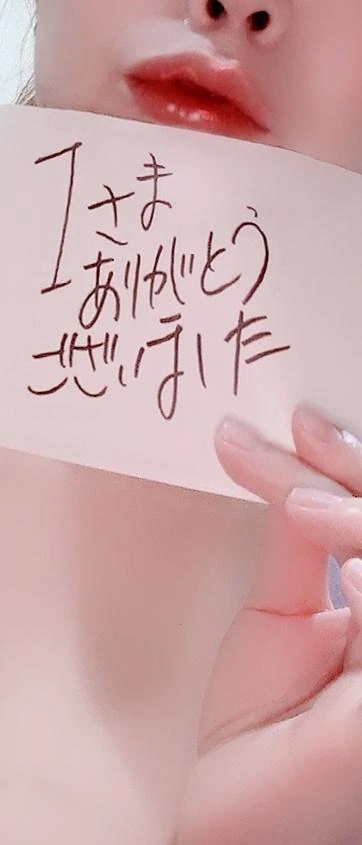 Iさま
ありがとう
ございました